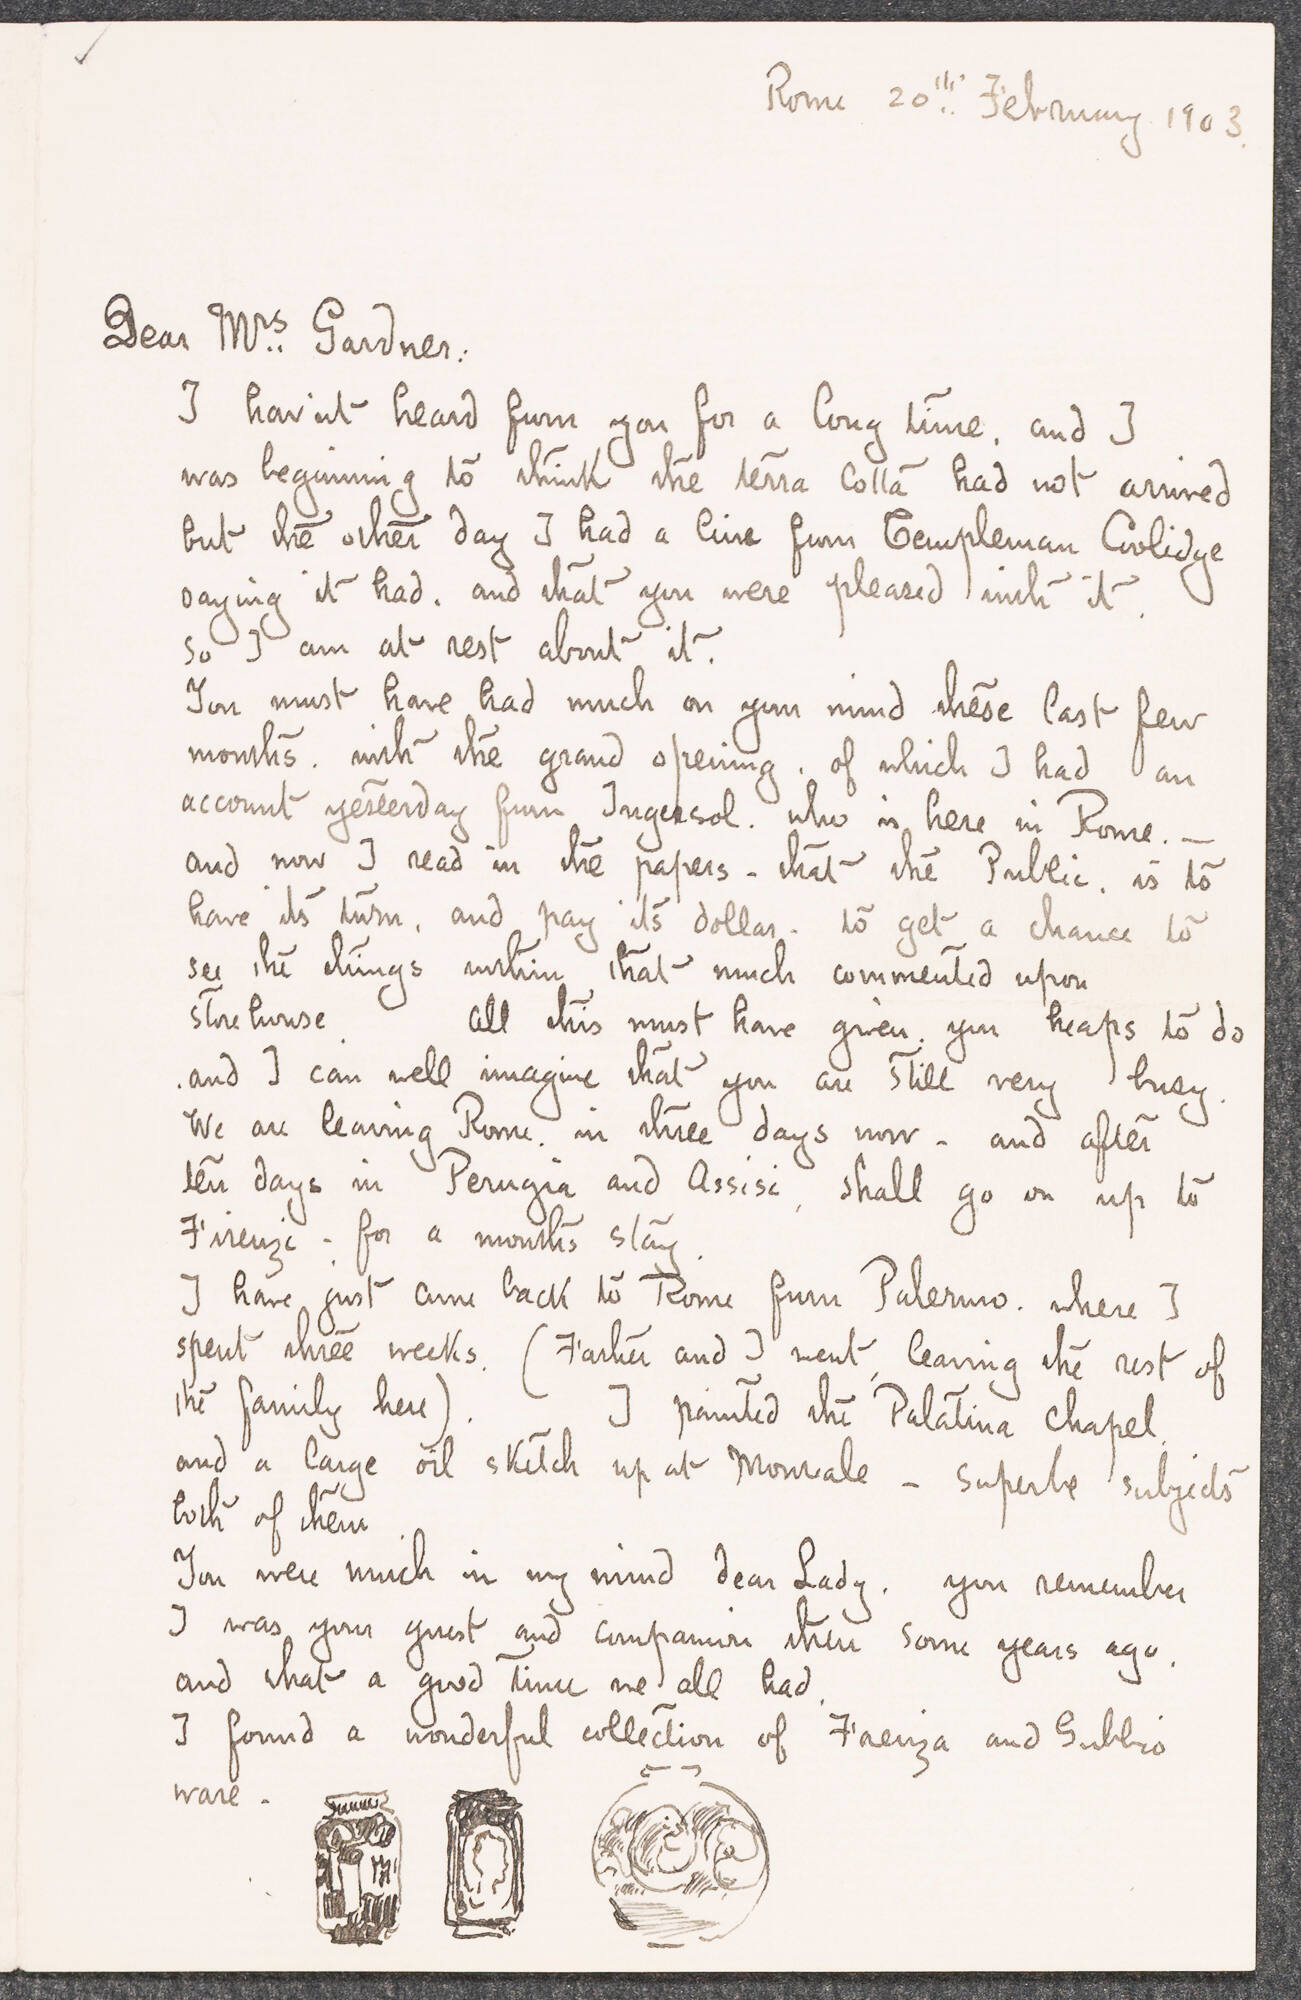 Rome 20th February 1903.
Dear Mrs. Gardner:
I hav'nt heard from you for a long time, and I
was beginning to think the terra cotta had not arrived
but the other day I had a line from Templeman Coolidge
saying it had. and that you were pleased with it.
so I am at rest about it.
You must have had much on your mind these last few
months. with the grand opening. of which I had an
account yesterday from Ingersol. who is here in Rome. —
and now I read in the papers - that the Public. is to
have its turn, and pay its dollar - to get a chance to
see the things within that much commented upon
storehouse All this must have given you heaps to do
and I can well imagine that you are still very busy.
We are leaving Rome. in three days now - and after
ten days in Perugia and Assisi, shall go on up to
Firenze - for a months stay.
I have just come back to Rome from Palermo. where I
spent three weeks. (Father and I went, leaving the rest of
the family here). I painted the Palatina Chapel.
and a large oil sketch up at Monreale - superbe subjects
both of them.
You were much in my mind dear Lady. you remember
I was your guest and companion there some years ago.
and what a good time we all had.
I found a wonderful collection of Faenza and Gubbio
ware -